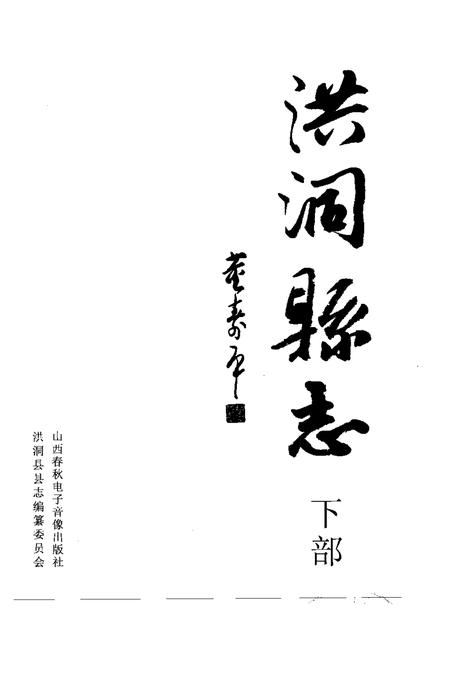 洪洞縣志
下部
董寿平
山西春秋电子音像出版社
洪洞县县志编纂委员会